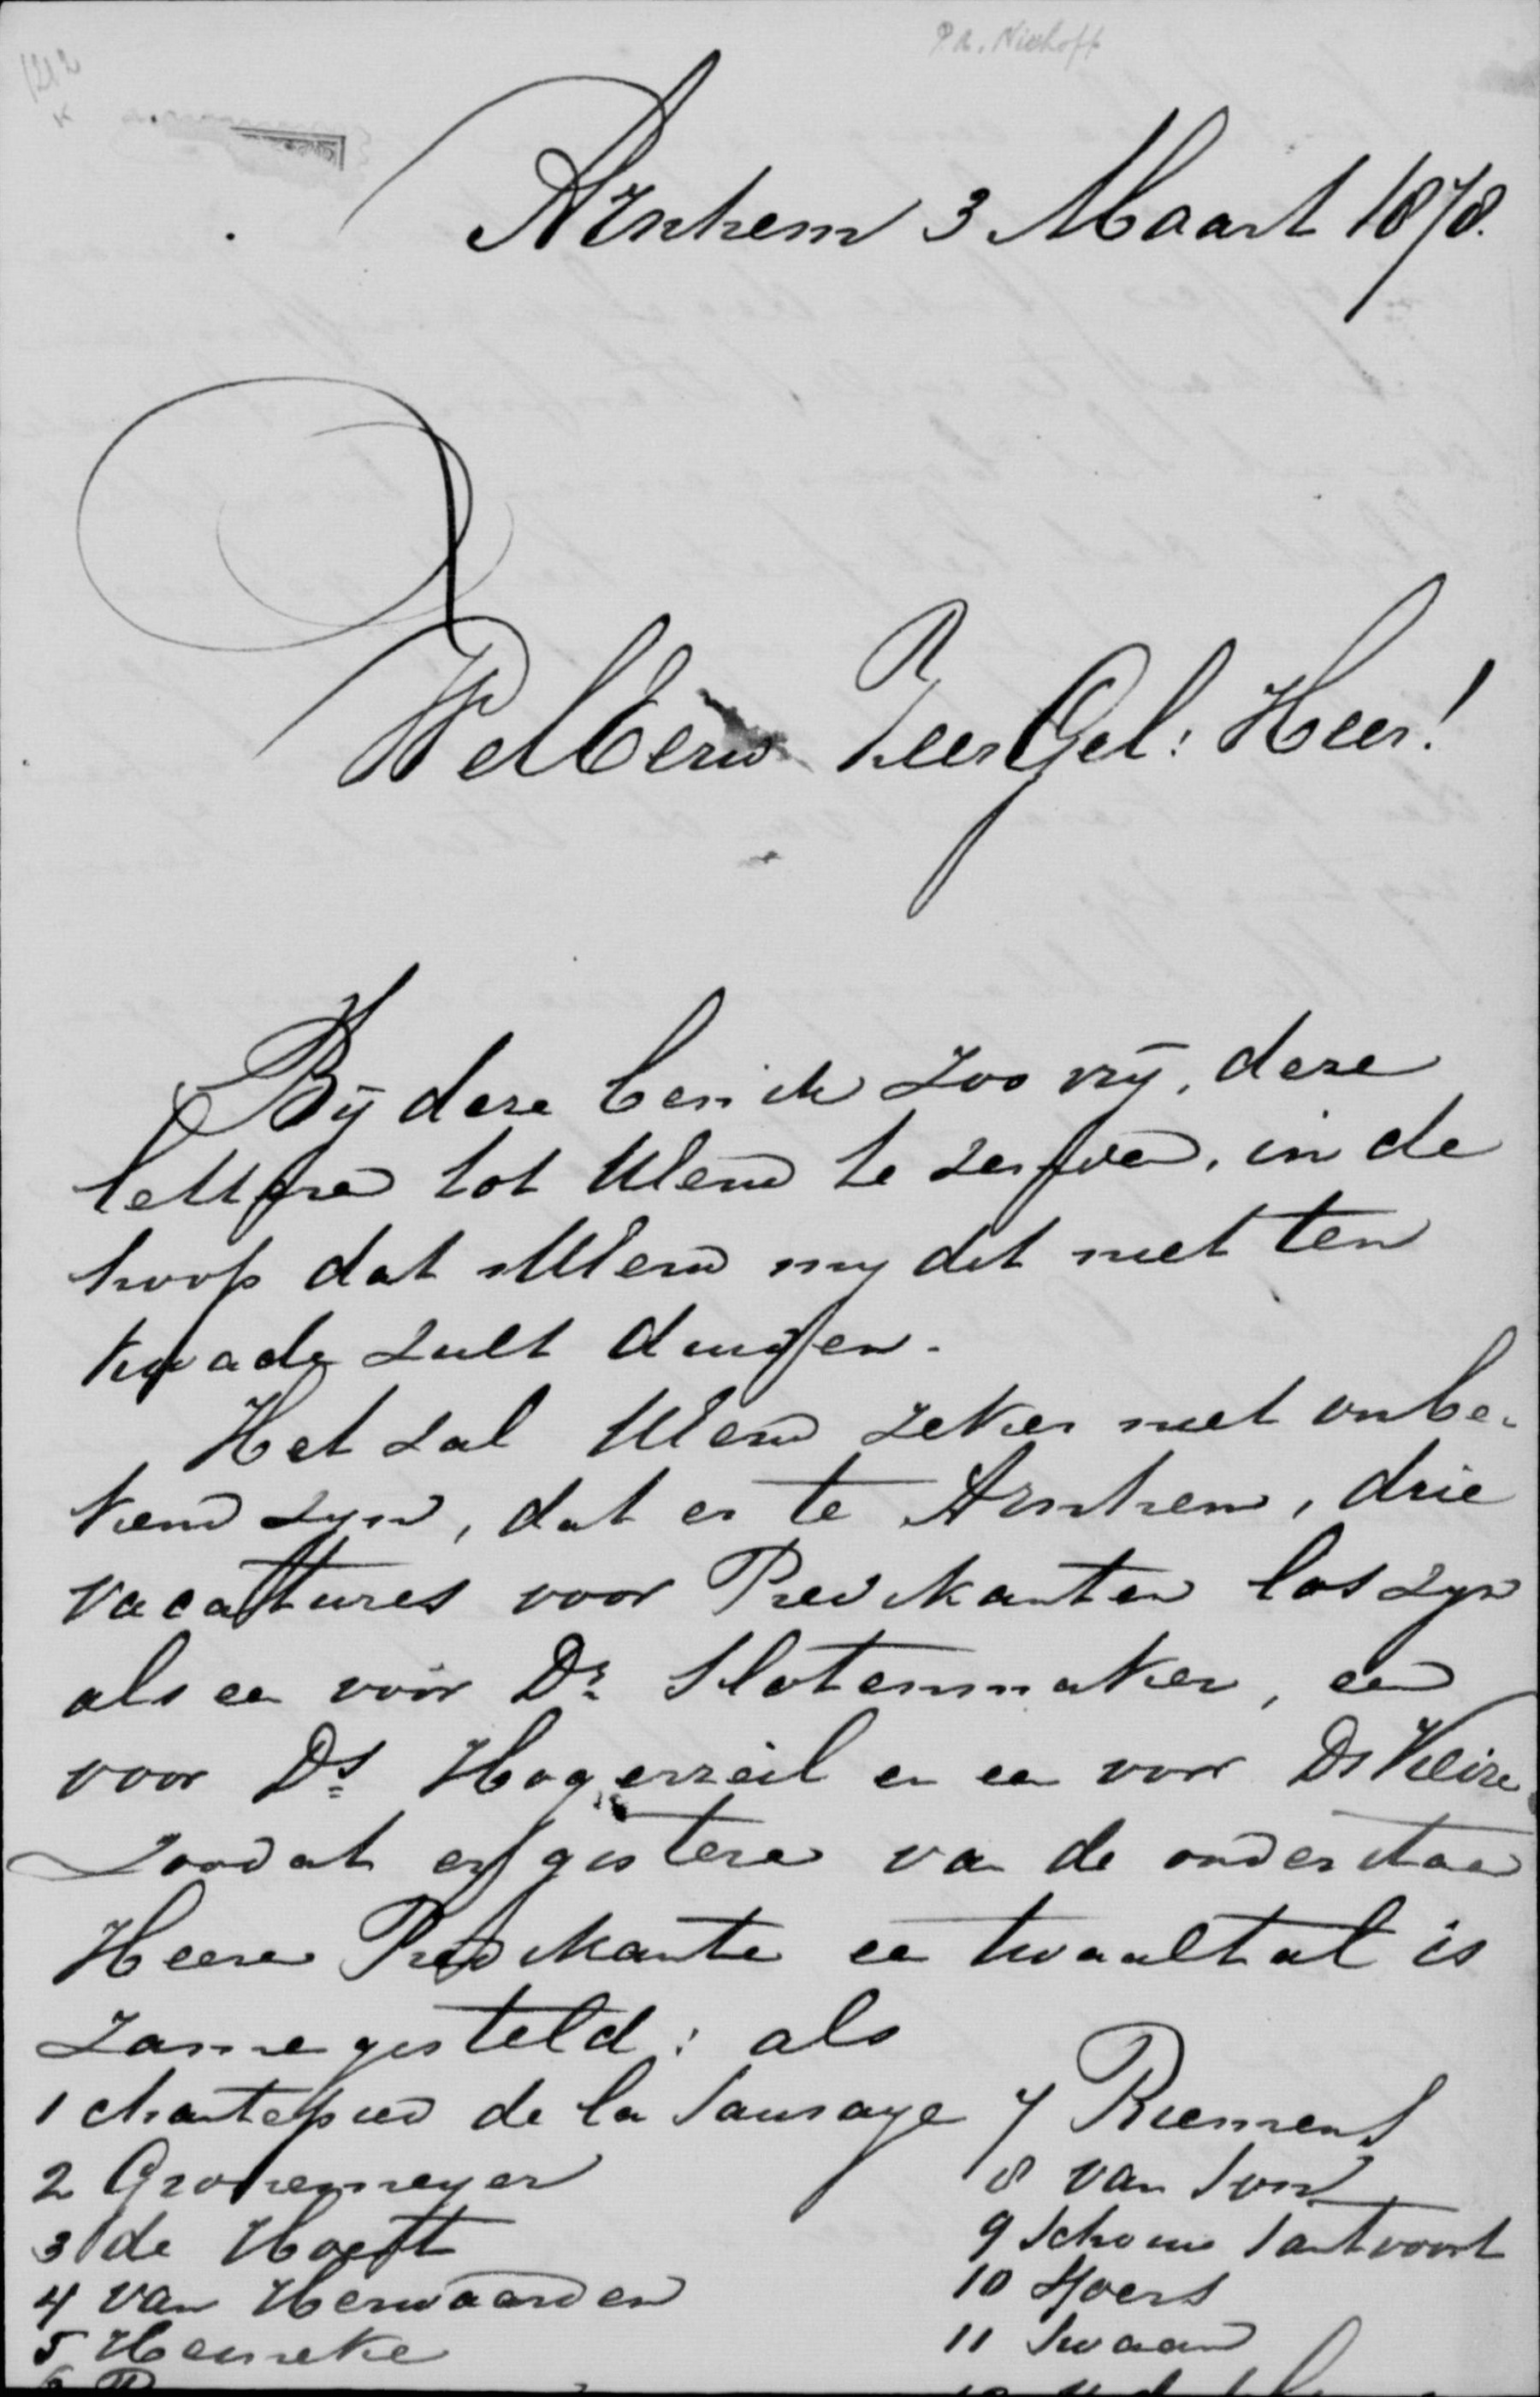 P. A. Niehoff
Arnhem 3 Maart 1878.
WelEerw ZeerGel: Heer!
Bij deze ben ik zoo vrij, deze
letteren tot UEerw te zenden, in de
hoop dat UEerw my dit niet ten
kwade zult duiden.
Het zal UEerw zeker niet onbe-
kend zyn, dat er te Arnhem, drie
vacattures voor Predikanten los zyn
als een voor Dr Slotemmaker, een
voor Ds Hogerzeil en een voor Ds
Zoodat er gisteren van de onderstaan
Heeren Predikanten een twaalftal is
zamengesteld: als
1 Chantepied de la Sausaye
2 Gronemeyer
3 de Hoeft
4 van Herwaarden
5 Heineke
7 Riemens
8 van Son
9 Schouw Santvoort
10
11 Swaan